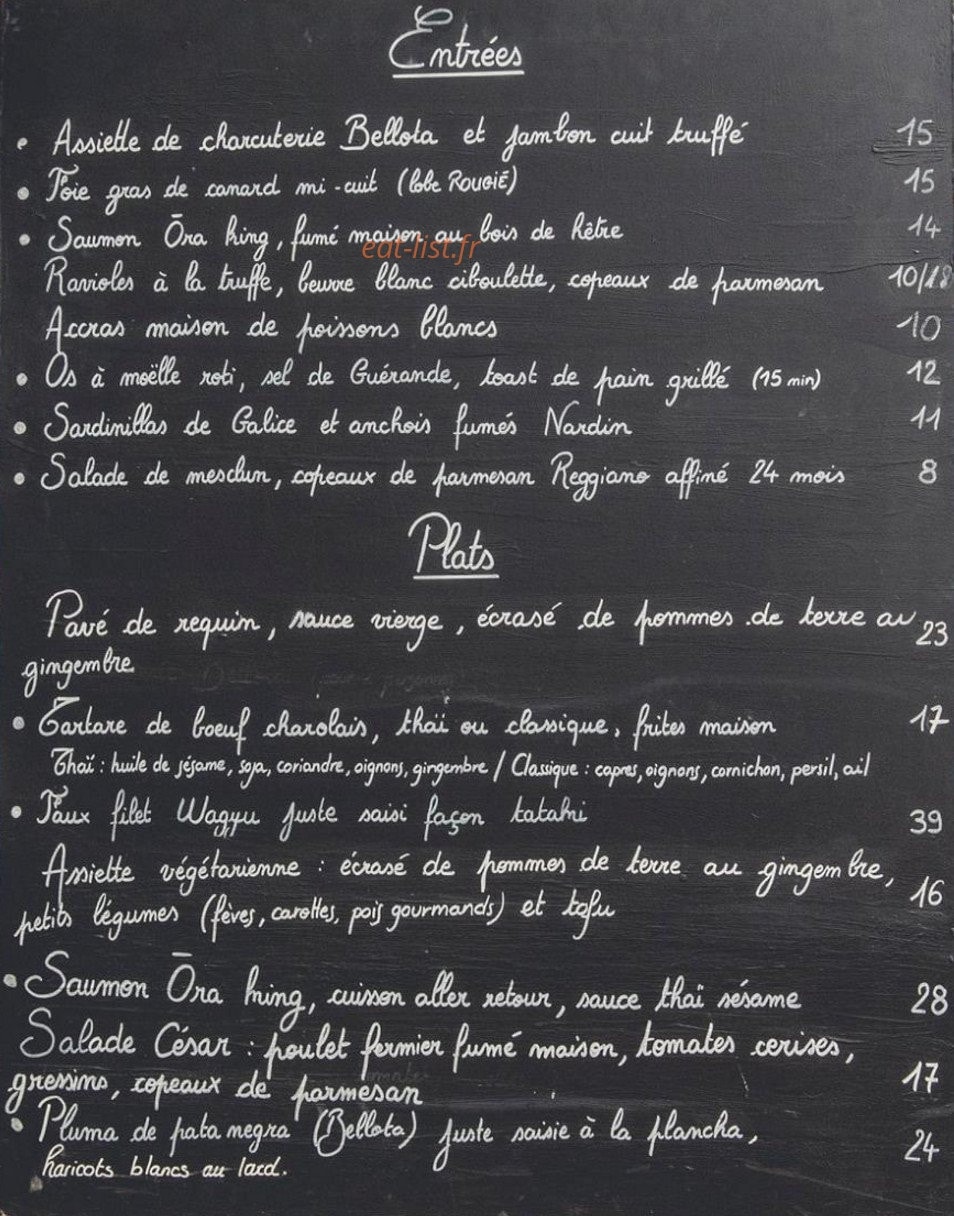 Entrées
• Assiette de charcuterie Bellota et jambon cuit truffé 15
• Foie gras de canard mi-cuit (lobe ROUGIÉ) 15
• Saumon Ōra king, fumé maison au bois de hêtre 14
eat-list.fr
Ravioles à la truffe, beurre blanc ciboulette, copeaux de parmesan 10/18
Accras maison de poissons blancs 10
• Os à moëlle roti, sel de Guérande, toast de pain grillé (15 min) 12
• Sardinillas de Galice et anchois fumés Nardin 11
• Salade de mesclun, copeaux de parmesan Reggiano affiné 24 mois 8
Plats
Pavé de requin, sauce vierge, écrasé de pommes de terre au 23
gingembre
• Tartare de boeuf charolais, thaï ou classique, frites maison 17
Thaï : huile de sésame, soja, coriandre, oignons, gingembre / Classique : capres, oignons, cornichon, persil, ail
• Faux filet Wagyu juste saisi façon tataki 39
Assiette végétarienne : écrasé de pommes de terre au gingembre, 16
petits légumes (fèves, carottes, pois gourmands) et tofu
• Saumon Ōra king, cuisson aller retour, sauce thaï sésame 28
Salade César : poulet fermier fumé maison, tomates cerises,
gressins, copeaux de parmesan 17
• Pluma de pata negra (Bellota) juste saisie à la plancha, 24
haricots blancs au lard.